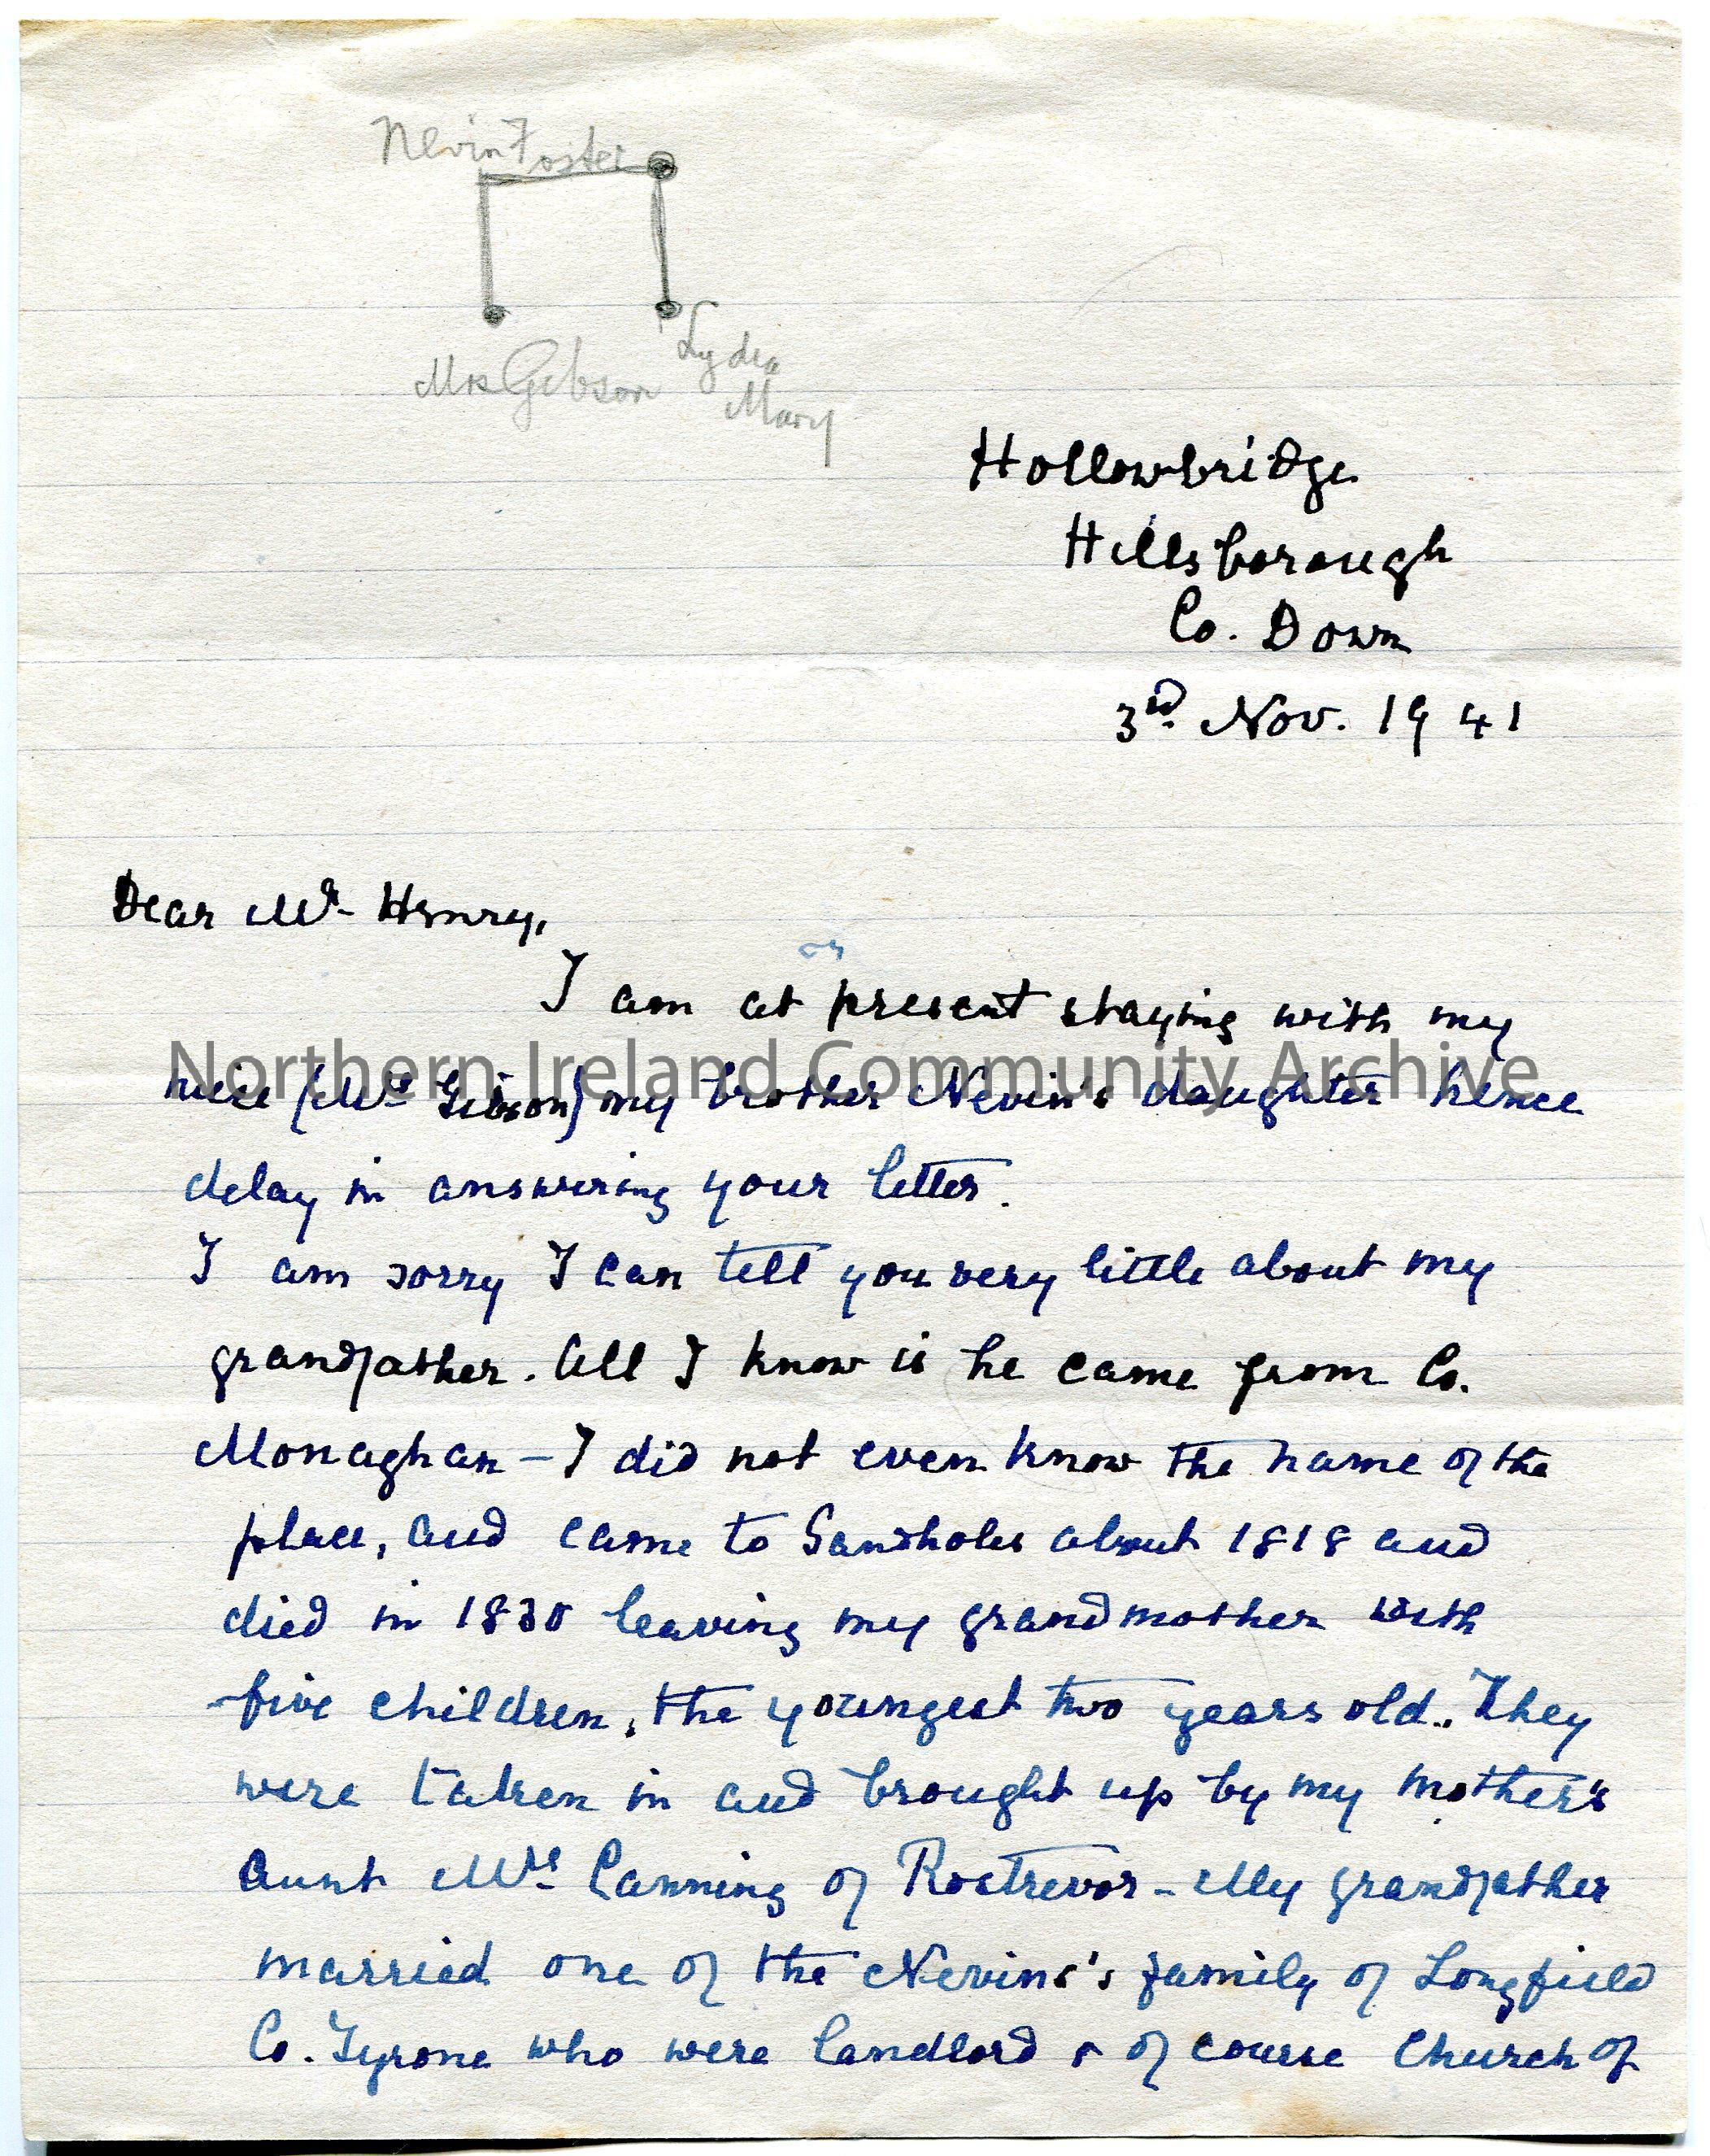 Nevin Foster
Mrs Gibson
Lydia
Mary
Hollowbridge
Hillsborough
Co. Down
3rd Nov. 1941
Dear Mr Henry,
I am at present staying with my
Northern Ireland Community Archive
niece (Mrs Gibson) my brother Nevin's daughter hence
delay in answering your letter.
I am sorry I can tell you very little about my
grandfather. All I know is he came from Co.
Monaghan – I did not even know the name of the
place, and came to Sandholes about 1818 and
died in 1830 leaving my grandmother with
five children, the youngest two years old. They
were taken in and brought up by my mother's
aunt Mrs Canning of Rostrevor – My grandfather
married one of the Nevins's family of Longfield
Co. Tyrone who were landlord & of course Church of